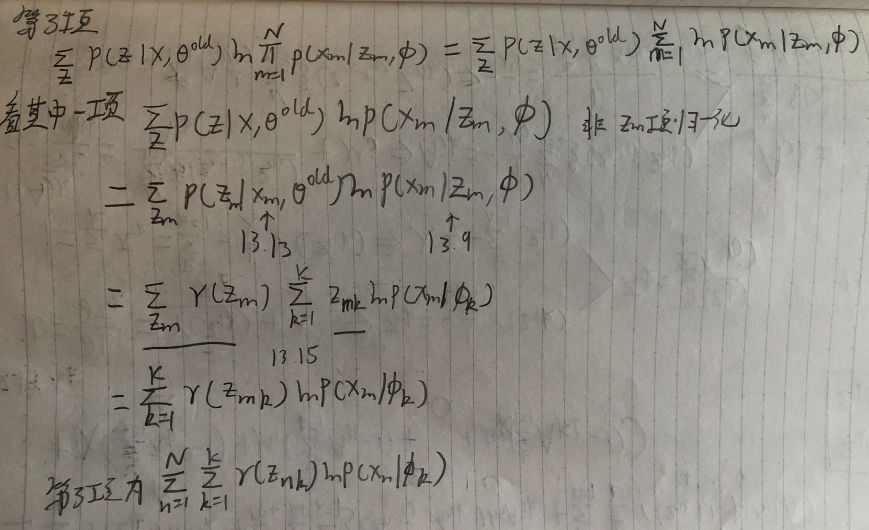 第3项
∑_z P(z|X, θ^old) ln ∏_{m=1}^N p(x_m|z_m, ϕ) = ∑_z P(z|X, θ^old) ∑_{m=1}^N ln P(x_m|z_m, ϕ)
看其中一项 ∑_z P(z|X, θ^old) ln p(x_m|z_m, ϕ) 非 z_m 项归一化
= ∑_{z_m} P(z_m|x_m, θ^old) ln P(x_m|z_m, ϕ)
↑ ↑
13.13 13.9
= ∑_{z_m} γ(z_m) ∑_{k=1}^K z_{mk} ln P(x_m|ϕ_k)
13.15
= ∑_{k=1}^K γ(z_{mk}) ln P(x_m|ϕ_k)
第3项为 ∑_{n=1}^N ∑_{k=1}^K γ(z_{nk}) ln P(x_n|ϕ_k)